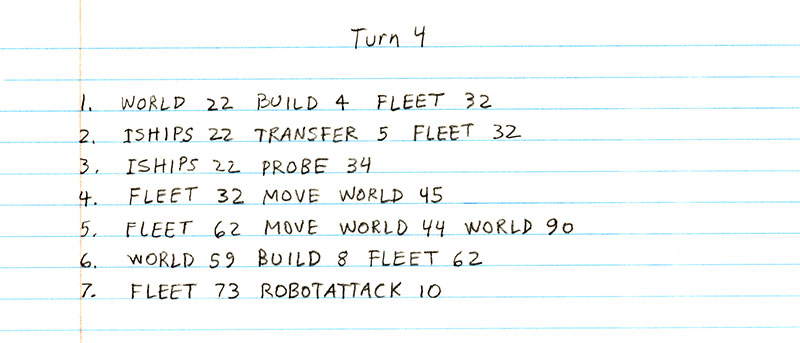 Turn 4
1. WORLD 22 BUILD 4 FLEET 32
2. ISHIPS 22 TRANSFER 5 FLEET 32
3. ISHIPS 22 PROBE 34
4. FLEET 32 MOVE WORLD 45
5. FLEET 62 MOVE WORLD 44 WORLD 90
6. WORLD 59 BUILD 8 FLEET 62
7. FLEET 73 ROBOTATTACK 10